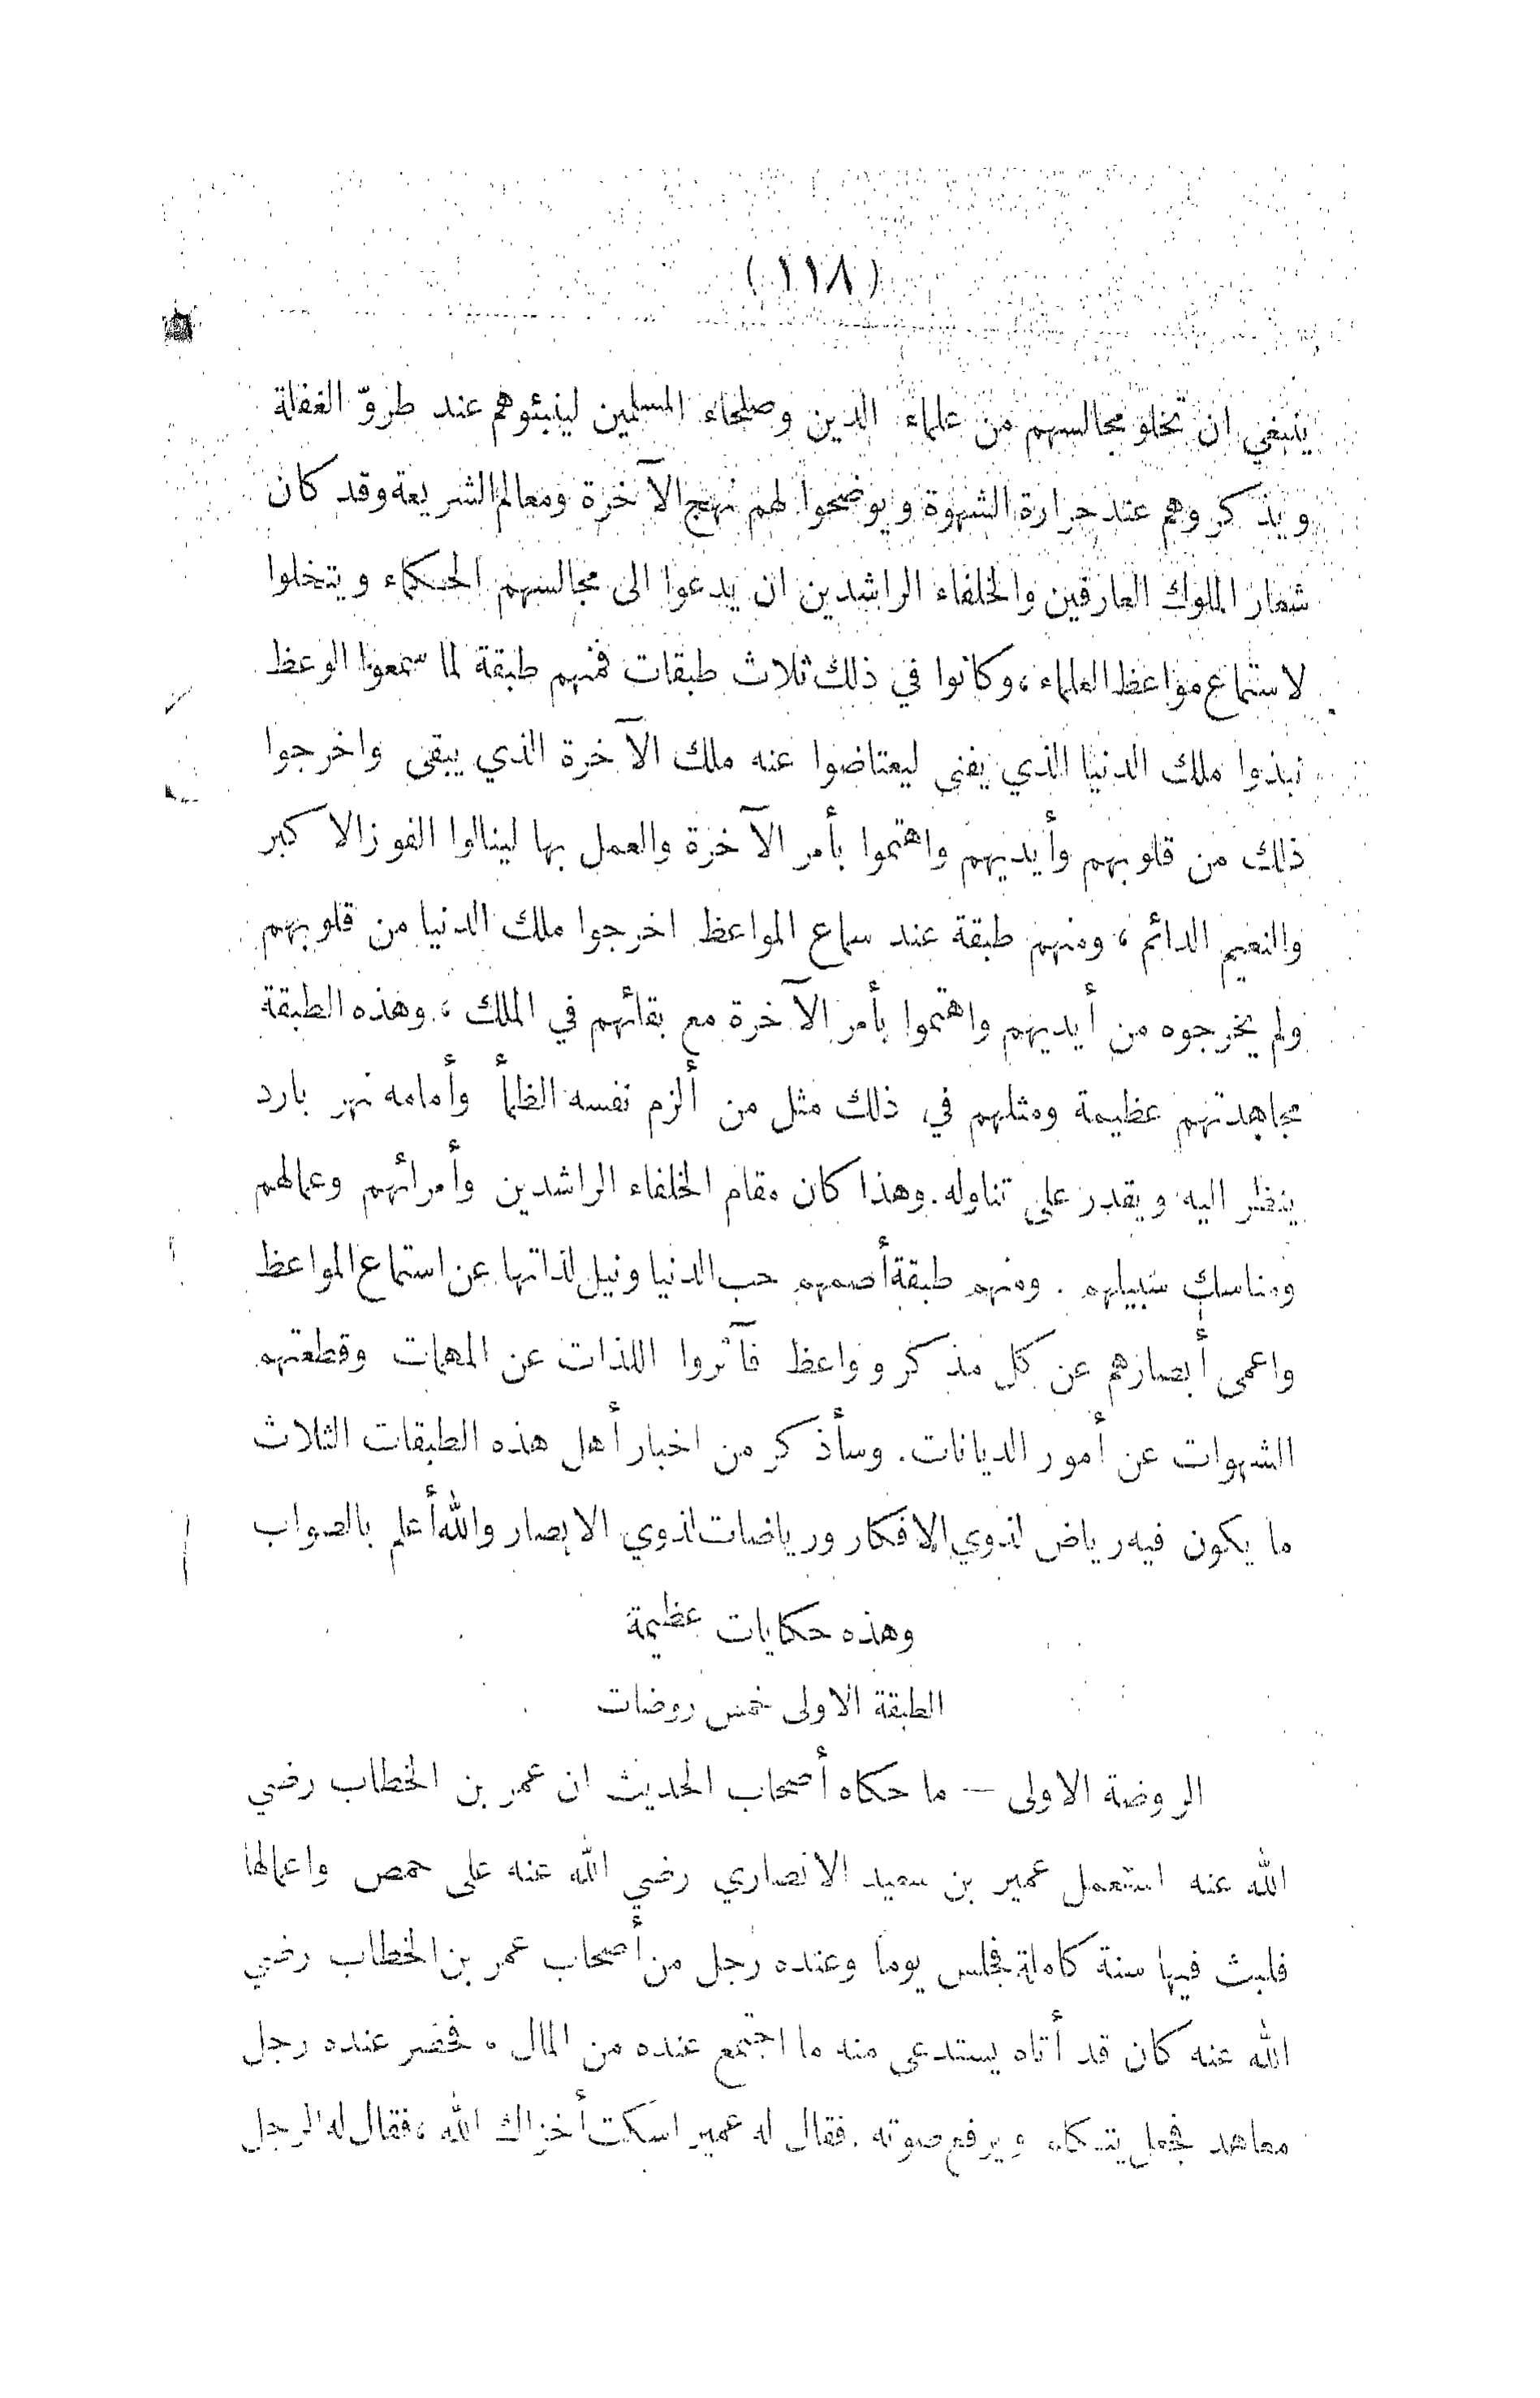 ( ١١٨ )
ينبغي ان تخلو مجالسهم من علماء الدين وصلحاء المسلمين لينبئوهم عند طروّ الغفلة
ويذكروهم عند حرارة الشهوة ويوضحوا لهم نهج الآخرة ومعالم الشريعة وقد كان
شعار الملوك العارفين والخلفاء الراشدين ان يدعوا الى مجالسهم الحكماء ويتخلوا
لاستماع مواعظ العلماء، وكانوا في ذلك ثلاث طبقات فمنهم طبقة لما سمعوا الوعظ
نبذوا ملك الدنيا الذي يفنى ليعتاضوا عنه ملك الآخرة الذي يبقى واخرجوا
ذلك من قلوبهم وأيديهم واهتموا بأمر الآخرة والعمل بها لينالوا الفوز الاكبر
والنعيم الدائم ، ومنهم طبقة عند سماع المواعظ اخرجوا ملك الدنيا من قلوبهم
ولم يخرجوه من أيديهم واهتموا بأمر الآخرة مع بقائهم في الملك ، وهذه الطبقة
مجاهدتهم عظيمة ومثلهم في ذلك مثل من ألزم نفسه الظمأ وأمامه نهر بارد
ينظر اليه ويقدر على تناوله . وهذا كان مقام الخلفاء الراشدين وأمرائهم وعمالهم
ومناسك سبيلهم . ومنهم طبقة أصمهم حب الدنيا ونيل لذاتها عن استماع المواعظ
واعمى أبصارهم عن كل مذكر وواعظ فآثروا اللذات عن المهمات وقطعتهم
الشهوات عن أمور الديانات . وسأذكر من اخبار أهل هذه الطبقات الثلاث
ما يكون فيه رياض لذوي الافكار ورياضات لذوي الابصار والله أعلم بالصواب
وهذه حكايات عظيمة
الطبقة الاولى خمس روضات
الروضة الاولى – ما حكاه أصحاب الحديث ان عمر بن الخطاب رضي
الله عنه استعمل عمير بن سعيد الانصاري رضي الله عنه على حمص واعمالها
فلبث فيها سنة كاملة فجلس يوما وعنده رجل من أصحاب عمر بن الخطاب رضي
الله عنه كان قد أتاه يستدعى منه ما اجتمع عنده من المال ، فحضر عنده رجل
معاهد فجعل يتكلم ويرفع صوته . فقال له عمير اسكت أخزاك الله ، فقال له الرجل